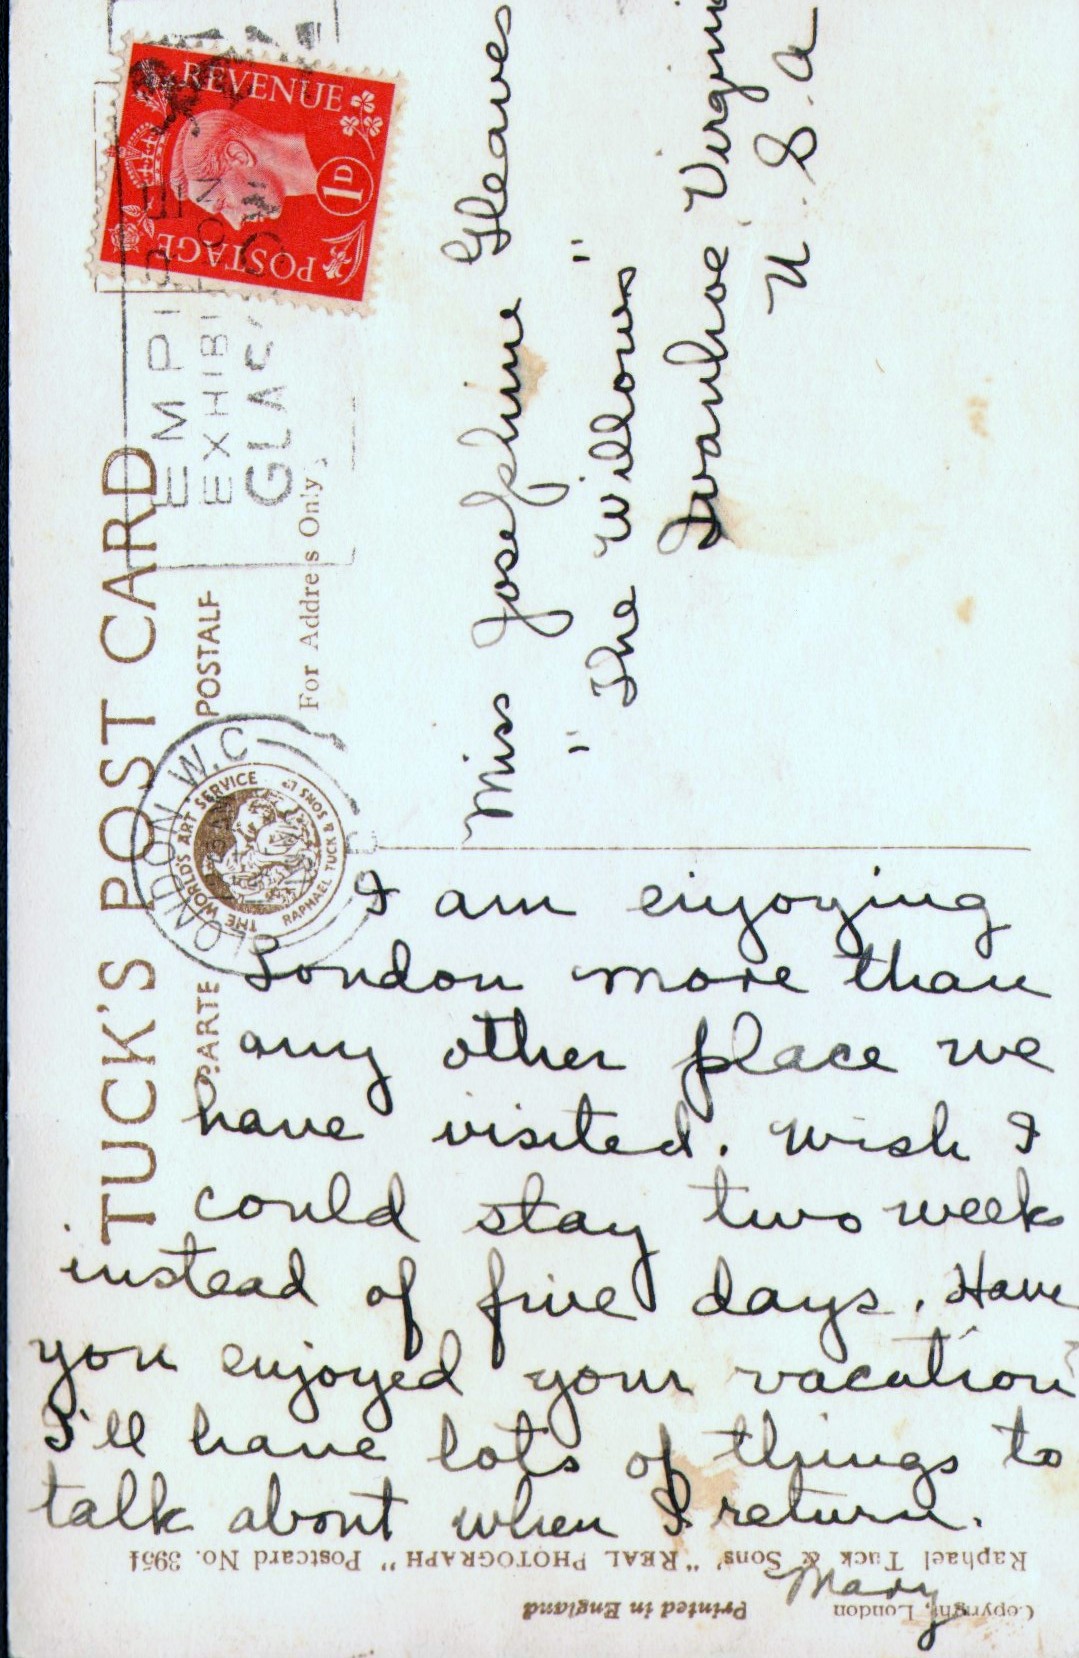 TUCK'S POST CARD
CARTE POSTALE
For Address Only
REVENUE
POSTAGE
1D
EMPI
EXHIBI
GLAS
LONDON W.C
THE WORLD'S ART SERVICE
RAPHAEL TUCK & SONS LD
Miss Josephine Gleaves
" The Willows "
Ivanhoe Virgini
U. S. A
I am enjoying
London more than
any other place we
have visited. Wish I
could stay two weeks
instead of five days. Have
you enjoyed your vacation?
I'll have lots of things to
talk about when I return.
Mary
Raphael Tuck & Sons' "REAL PHOTOGRAPH" Postcard No. 3951
Copyright, London Printed in England